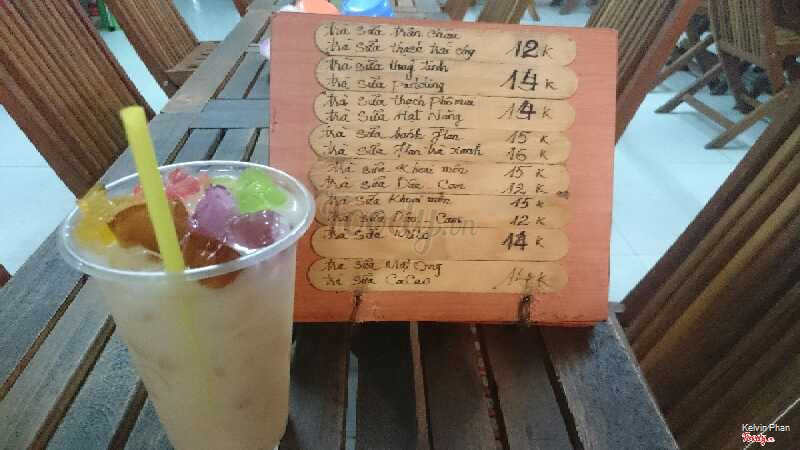 Trà sữa trân châu
Trà sữa thạch trái cây 12K
Trà sữa thuỷ tinh
Trà sữa pudding 14K
Trà sữa thạch phô mai
Trà sữa Hạt Năng 14K
Trà sữa bánh flan 15K
Trà sữa flan trà xanh 16K
Trà sữa Khoai môn 15K
Trà sữa Dâu Con 12K
Trà sữa Khoai môn 15K
Trà sữa Con 12K
Trà sữa 14K
Trà sữa Mật Ong
Trà sữa CaCao 14K
Kelvin Phan
Foody.vn